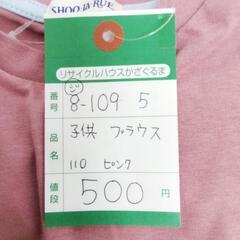 SHOO・LA・RUE
リサイクルハウスかざぐるま
番号 ジ 8-109 5
品名 子供 ブラウス
110 ピンク
値段 500円